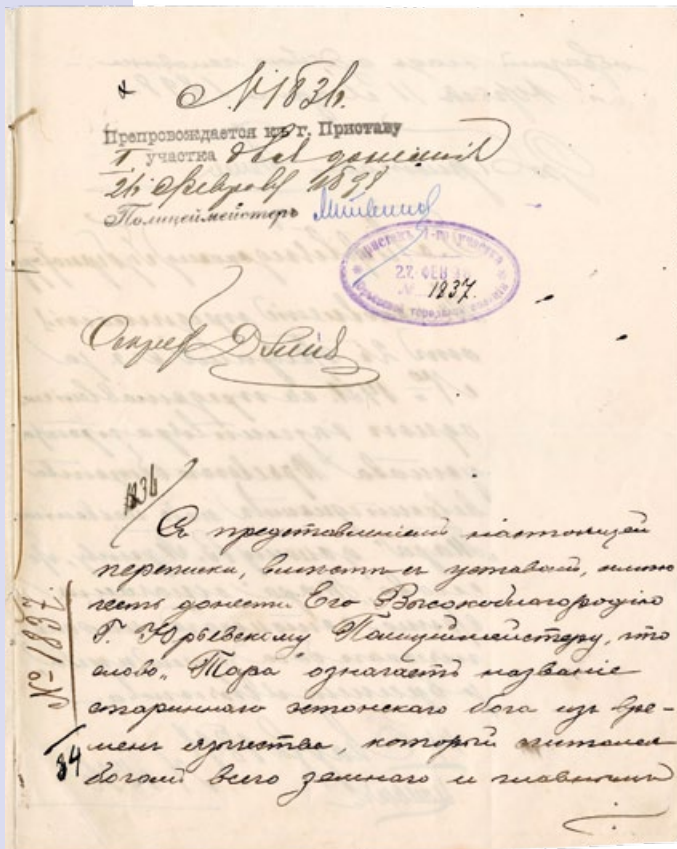 № 1836.
Препровождается къ г. Приставу
I участка для донесенія
26 Февраля 1898
Полицеймейстеръ
Приставъ 1-го участка
27 ФЕВ 98
№ 1837.
Юрьевской городской полиціи
Секрет
1836
Съ представленіемъ настоящей
переписки, вмѣстѣ съ уставомъ, имѣю
честь донести Его Высокоблагородію
Г. Юрьевскому Полицеймейстеру, что
слово „Тара" означаетъ названіе
стариннаго эстонскаго бога изъ вре-
менъ язычества, который считался
богомъ всего земнаго и главнымъ
№ 1837.
84